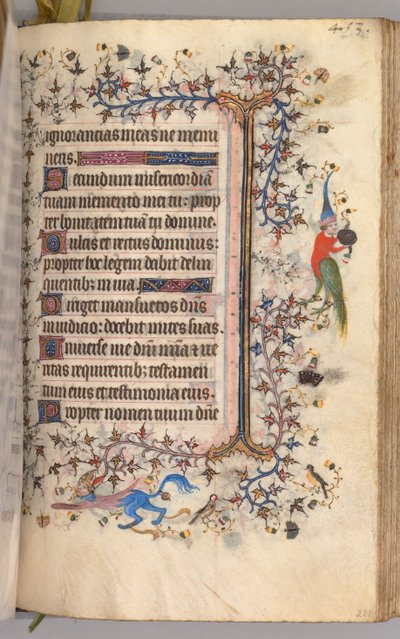 453.
ignorancias meas ne memi
neris.
Secundum misericordiā
tuam memento mei tu: prop
ter bonitatem tuā tu domine.
Dulcis et rectus dominus:
propter hoc legem dabit delin
quentib; in uia.
Diriget mansuetos dn̄s
in iudicio: docebit mites suas.
Uniuerse uie dn̄i mīa et ue
ritas requirentib; testamen
tum eius et testimonia eius.
Propter nomen tuum dn̄e